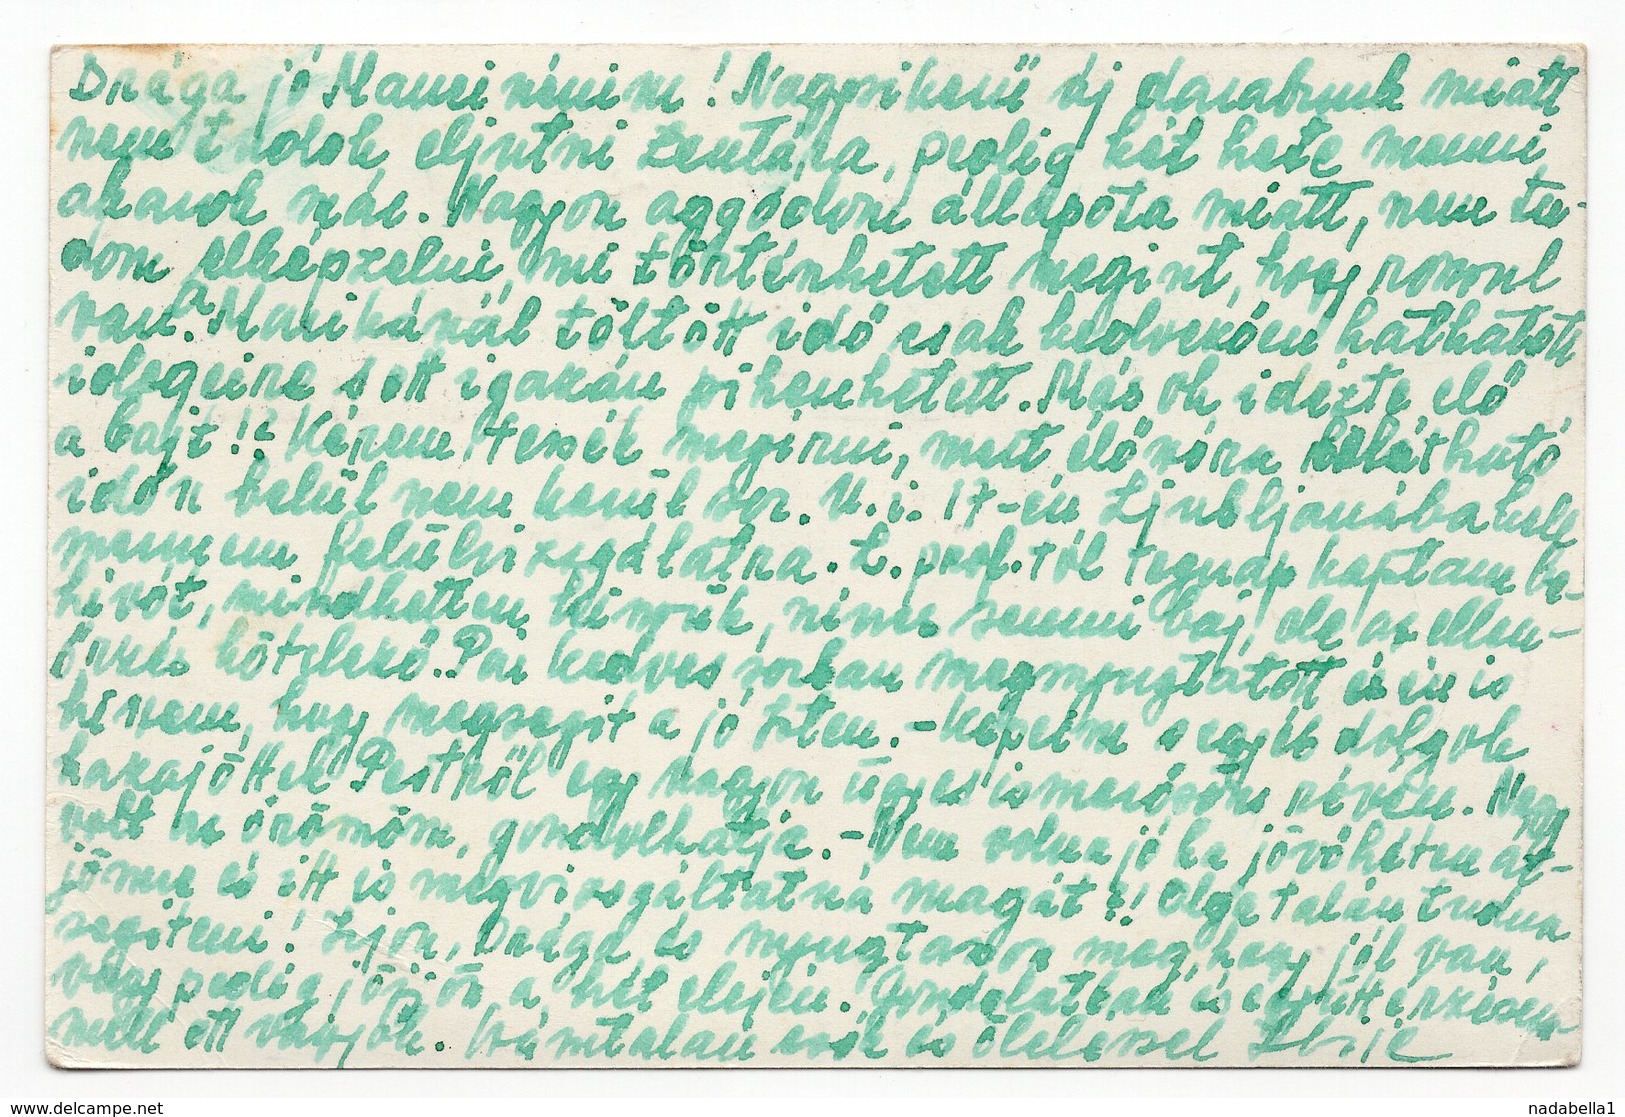 Drága jó Mancinénim! Nagysikerű új darabunk miatt
nem tudok eljutni Zentára, pedig két hete menni
akarok már. Nagyon aggódom állapota miatt, nem tu-
dom elképzelni, mi történhetett megint, hogy rosszul
van. A Marikánál töltött idő csak kedvezően hathatott
idegeire s ott igazán pihenhetett. Más ok idézte elő
a bajt!? Kérem, tessék megírni, mert élőszóra belátható
időn belül nem kerül sor. U. i. 17-én Ljubljanába kell
mennem felülvizsgálatra. L. prof.-tól tegnap kaptam be-
hívót, mindketten hisszük, nincs semmi baj, de az ellen-
őrzés kötelező. Pár kedves sorban megnyugtatott és én is
hiszem, hogy megsegít a jó Isten. - Képeim s egyéb dolgok
hazajöttek Pestről egy nagyon ügyes ismerősöm révén. Nagy
volt az örömöm, gondolhatja. - Nem volna jó ha jövőhéten át-
jönne és itt is megvizsgáltatná magát?! Olga talán tudna
segíteni! Írjon, Drága, és nyugtasson meg, hogy jól van,
vagy pedig jöjjön a hét elején. Gondolatban és együttérzésem
mell ott vagyok. Számtalan csók és ölelessel Ibric
nadabella1
delcampe.net